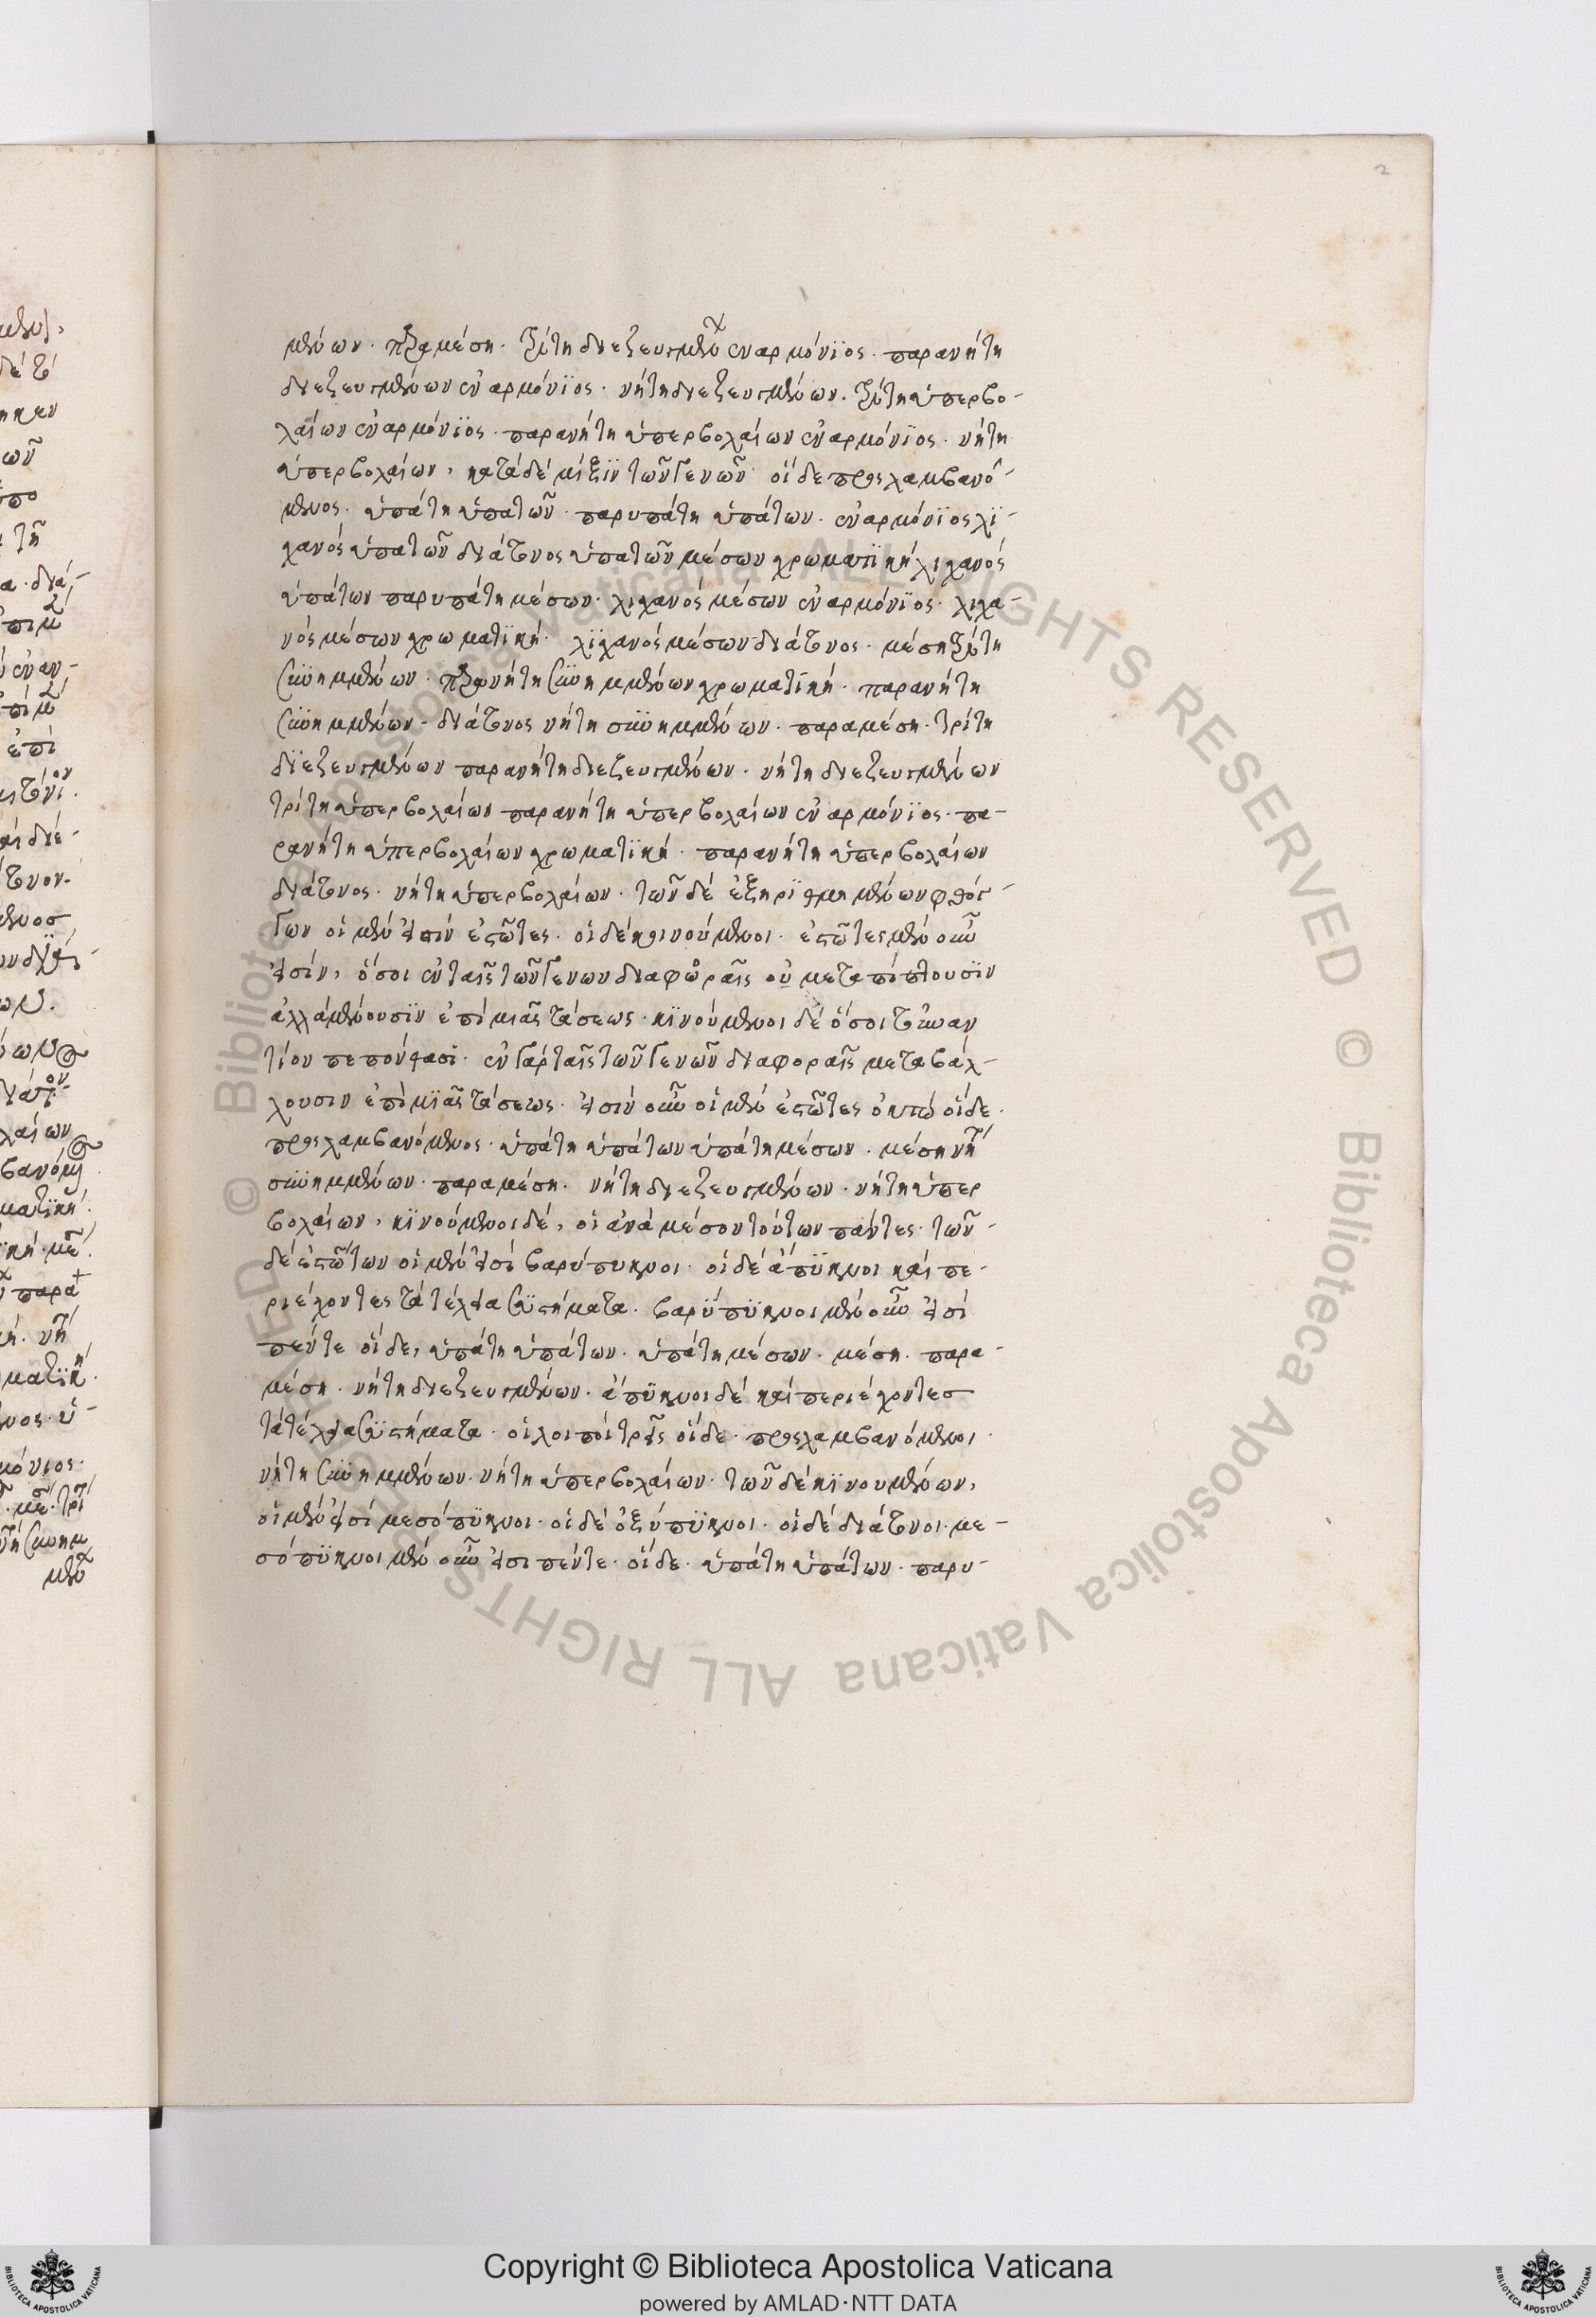 2
μένων. παραμέση. τρίτη διεζευγμένων ἐναρμόνϊος. παρανήτη
διεζευγμένων ἐναρμόνϊος. νήτη διεζευγμένων. τρίτη ὑπερβο-
λαίων ἐναρμόνϊος. παρανήτη ὑπερβολαίων ἐναρμόνϊος. νήτη
ὑπερβολαίων, κατά δέ μίξϊν τῶν γενῶν οἵδε προσλαμβανό-
μενος. ὑπάτη ὑπατῶν. παρυπάτη ὑπάτων. ἐναρμόνϊος λϊ-
χανός ὑπατῶν διάτονος ὑπατῶν μέσων χρωματϊκή λιχανός
ὑπάτων παρυπάτη μέσων. λιχανός μέσων ἐναρμόνϊος. λιχα-
νός μέσων χρωματϊκή. λϊχανός μέσων διάτονος. μέση τρίτη
συνημμένων. παρανήτη συνημμένων χρωματϊκή. παρανήτη
συνημμένων διάτονος νήτη συνημμένων. παραμέση. τρίτη
διεζευγμένων παρανήτη διεζευγμένων. νήτη διεζευγμένων
τρίτη ὑπερβολαίων παρανήτη ὑπερβολαίων ἐναρμόνϊος. πα-
ρανήτη ὑπερβολαίων χρωματϊκή. παρανήτη ὑπερβολαίων
διάτονος. νήτη ὑπερβολαίων. τῶν δέ ἐξηρϊθμημένων φθόγ-
γων οἱ μέν εἰσίν ἑστῶτες. οἱ δέ κινούμενοι. ἑστῶτες μέν οὖν
εἰσίν, ὅσοι ἐν ταῖς τῶν γενων διαφοραῖς οὐ μεταπίπτουσϊν
ἀλλά μένουσϊν ἐπί μιᾶς τάσεως. κϊνούμενοι δέ ὅσοι τοὐναν
τίον πεπόνθασϊ. ἐν γάρ ταῖς τῶν γενῶν διαφοραῖς μεταβάλ-
λουσιν ἐπί μϊᾶς τάσεως. εἰσίν οὖν οἱ μέν ἑστῶτες ὀκτώ οἵδε.
προσλαμβανόμενος. ὑπάτη ὑπάτων ὑπάτη μέσων. μέση νήτη
συνημμένων. παραμέση. νήτη διεζευγμένων. νήτη ὑπερ
βολαίων, κϊνούμενοι δέ, οἱ ἀνά μέσον τούτων πάντες. τῶν
δέ ἑστώτων οἱ μέν εἰσί βαρύπυκνοι. οἱ δέ ἄπϋκνοι καί πε-
ριέχοντες τά τέλεια συστήματα. βαρϋπϋκνοι μέν οὖν εἰσί
πέντε οἵδε, ὑπάτη ὑπάτων. ὑπάτη μέσων. μέση. παρα-
μέση. νήτη διεζευγμένων. ἄπϋκνοι δέ καί περιέχοντες
τά τέλεια συστήματα. οἱ λοιποί τρεῖς οἵδε. προσλαμβανόμενοι.
νήτη συνημμένων. νήτη ὑπερβολαίων. τῶν δέ κϊνουμένων,
οἱ μέν εἰσί μεσόπϋκνοι. οἱ δέ ὀξύπϋκνοι. οἱ δέ διάτονοι. με-
σόπϋκνοι μέν οὖν εἰσι πέντε. οἵδε. ὑπάτη ὑπάτων. παρυ-
Copyright © Biblioteca Apostolica Vaticana
powered by AMLAD·NTT DATA